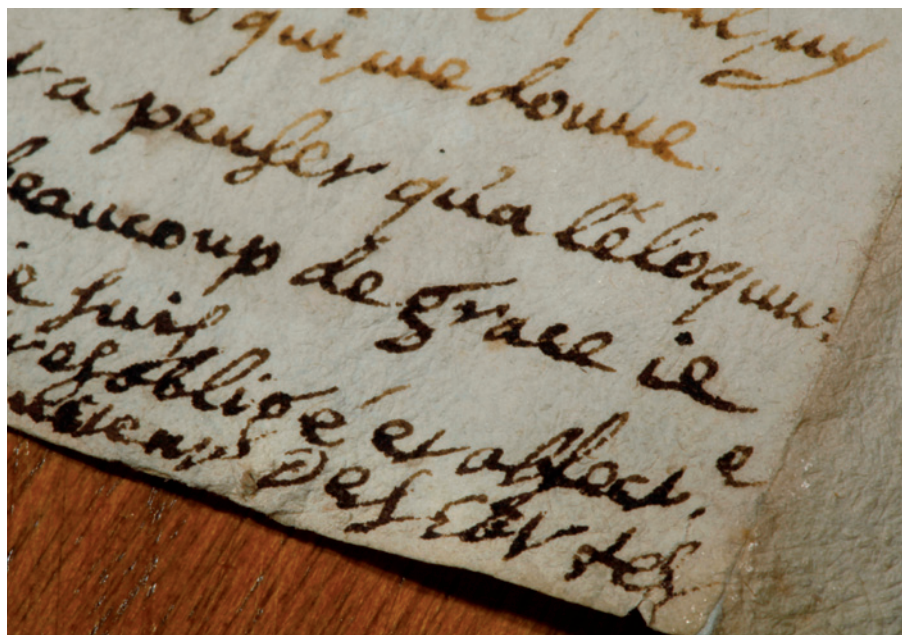 qui me donne
a penser qu'a l'éloquen:
beaucoup de grace ie
ie suis
tres obligé et affect.é
Descartes